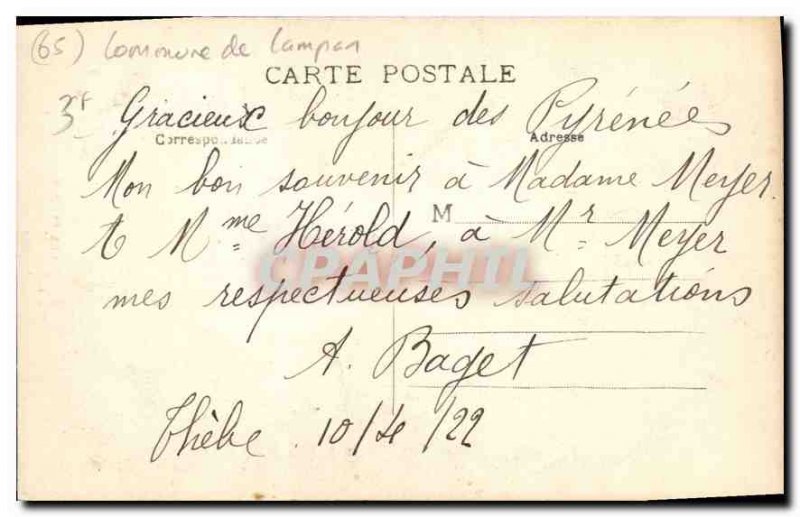 (65) Commune de Campan
CARTE POSTALE
3f Gracieux bonjour des Pyrénées
Correspondance Adresse
Mon bon souvenir à Madame Meyer.
& Mme Hérold, à Mr Meyer
M
CPAPHIL
mes respectueuses salutations
A. Baget
Thèbe 10/4/22